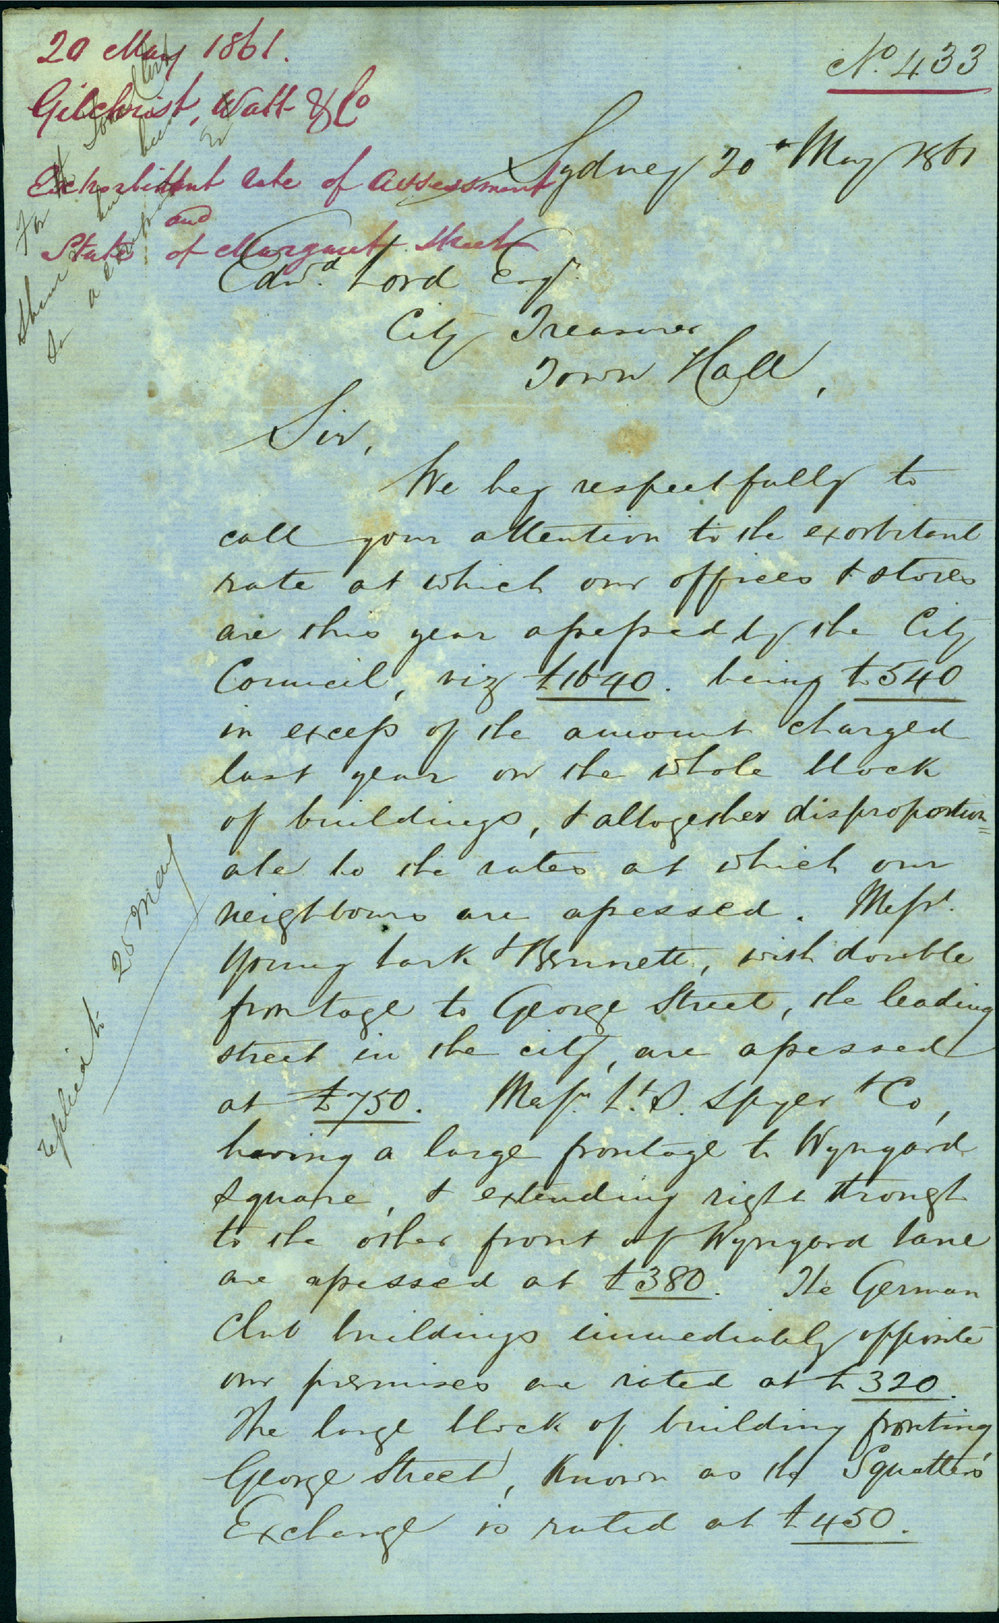 20 May 1861.
Gilchrist, Watt & Co
Exhorbitant rate of Assessment
and
State of Margaret Street
No. 433
Sydney 20th May 1861
Edwd. Lord Esqr.
City Treasurer
Town Hall,
Sir,
We beg respectfully to
call your attention to the exorbitant
rate at which our offices & stores
are this year assessed by the City
Council, viz £1640. being £540
in excess of the amount charged
last year on the whole block
of buildings, & altogether disproportion=
ate to the rates at which our
neighbours are assessed. Messrs.
Young Lark & Bennett, with double
frontage to George Street, the leading
street in the city, are assessed
at £750. Messrs. L. & S. Spyer & Co,
having a large frontage to Wynyard
Square, & extending right through
to the other front of Wynyard Lane
are assessed at £380. The German
Club buildings immediately opposite
our premises are rated at £320.
The large block of building fronting
George Street, known as the Squatters'
Exchange is rated at £450.
replied to 25 May